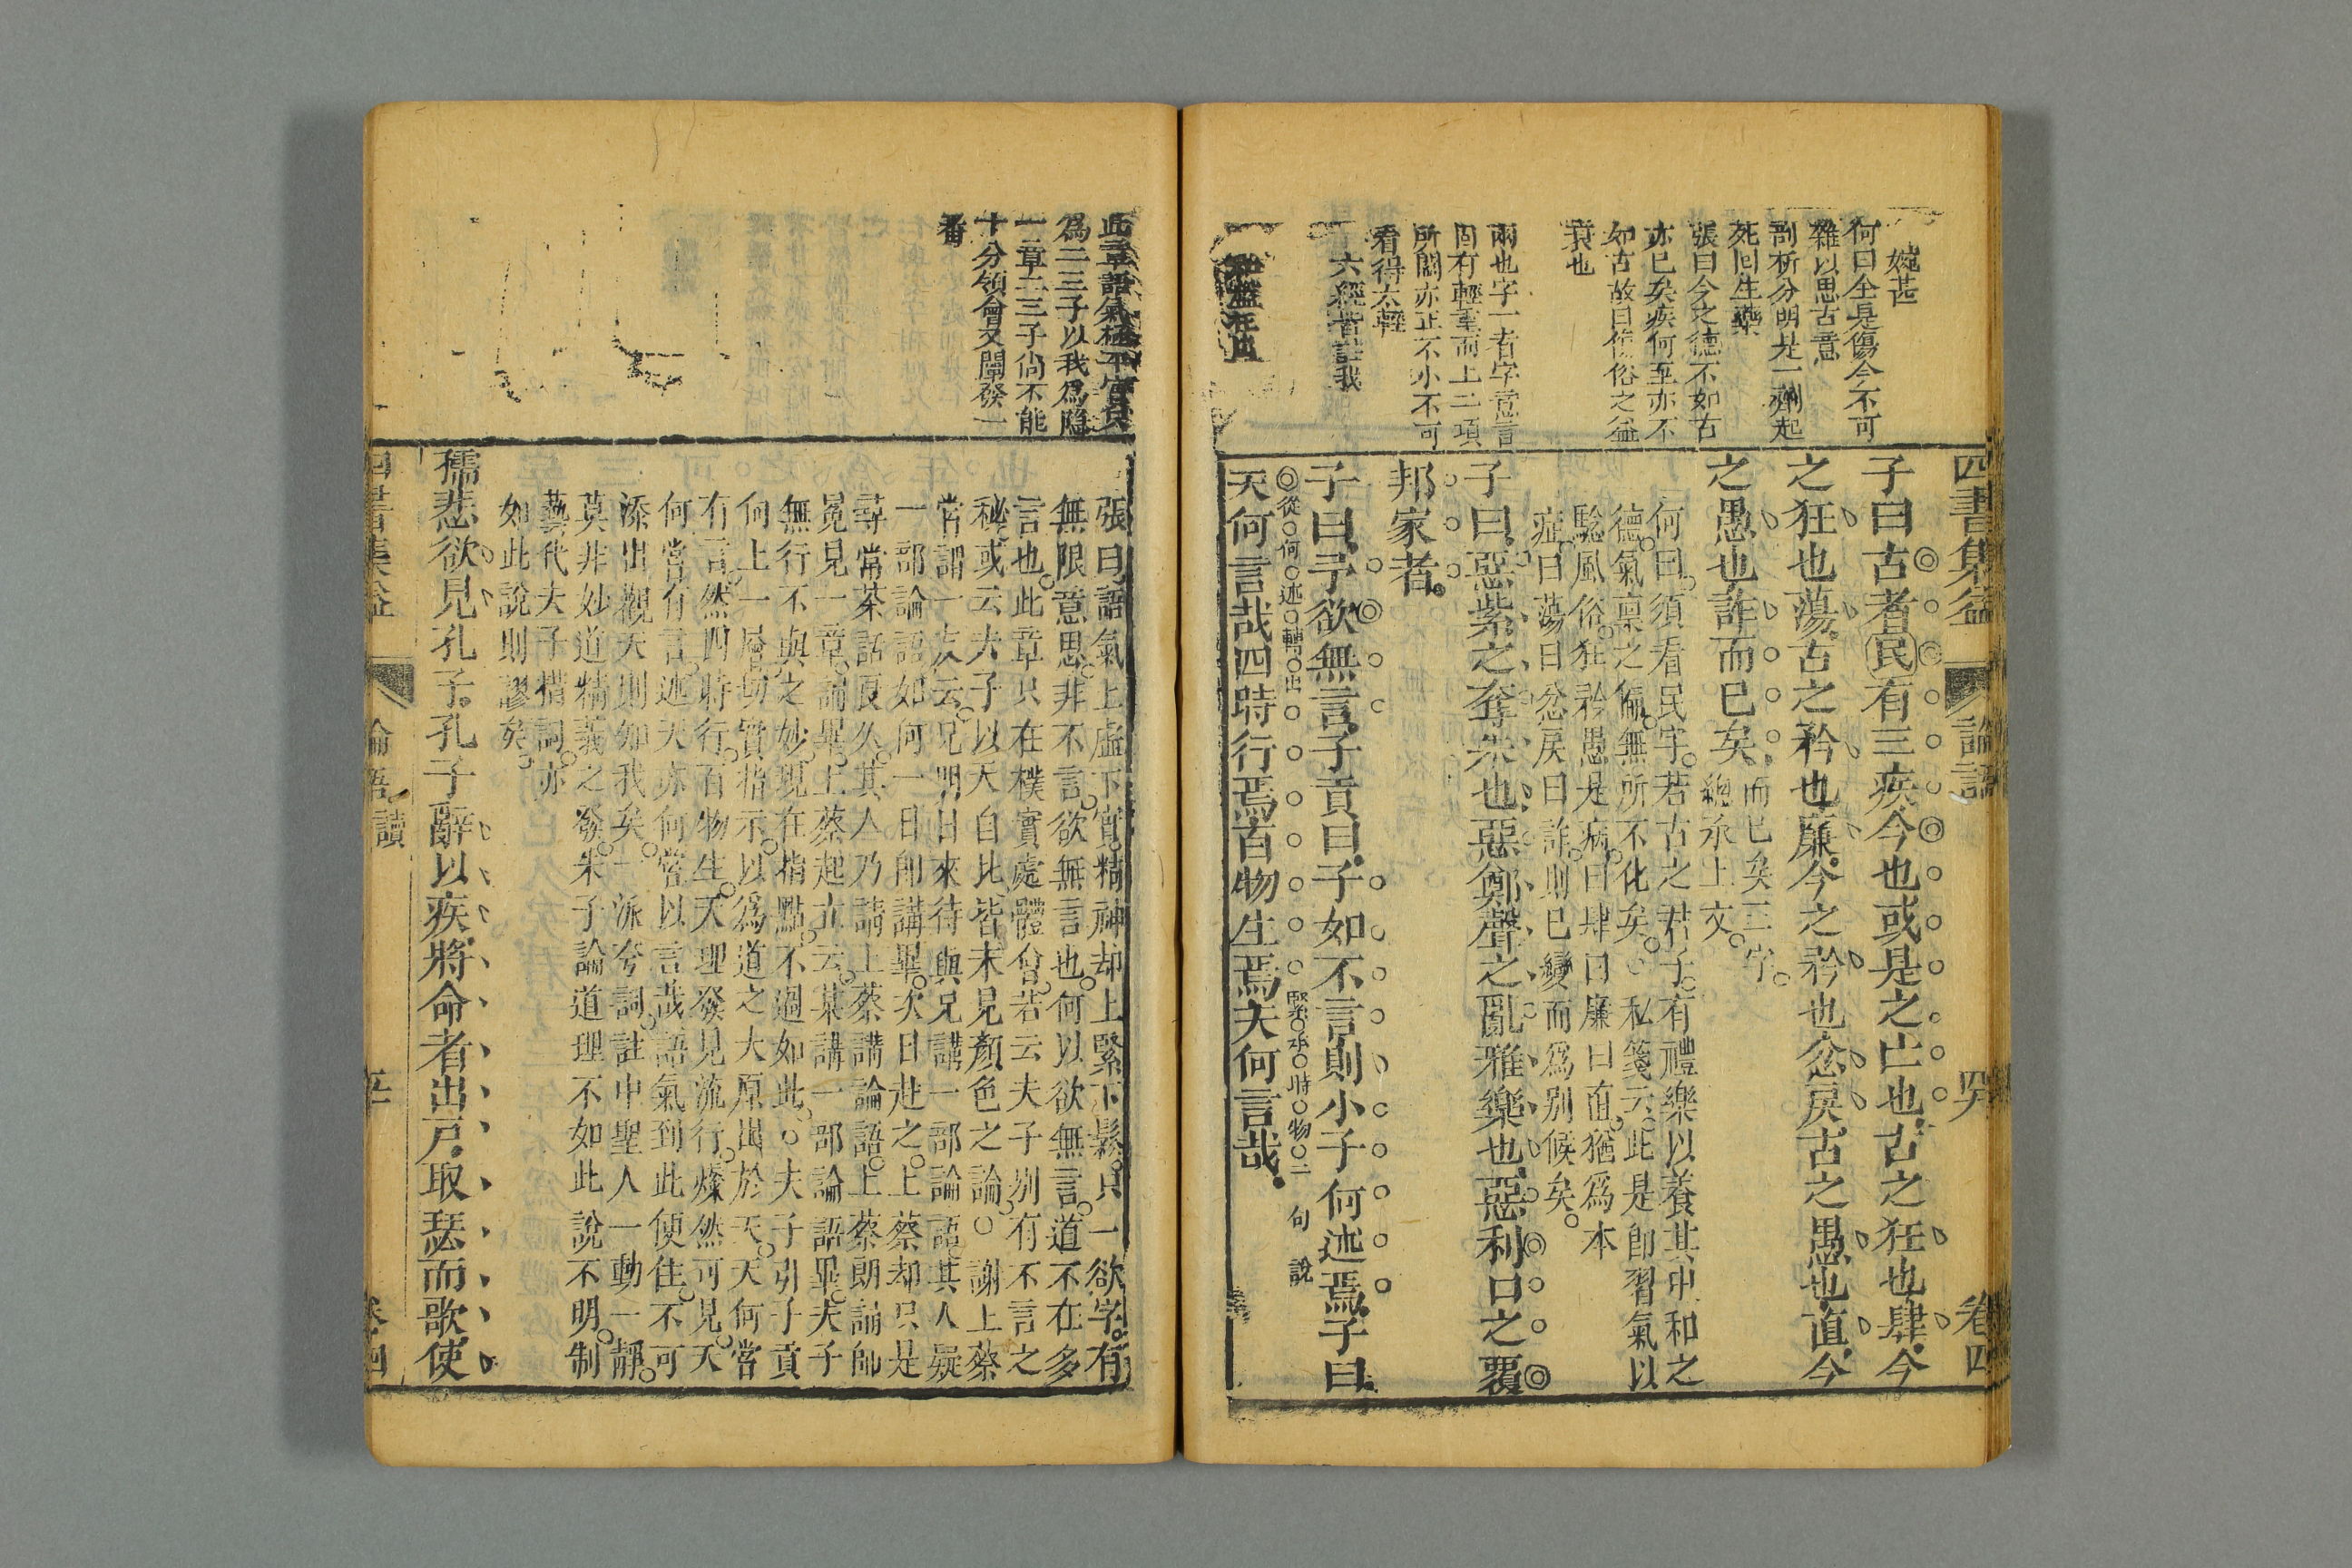 四書集益 論語 卷四
婉甚
何曰全是傷今不可
雜以思古意
剖析分明是一劑起
死回生藥
張曰今之德不如古
亦已矣疾何至亦不
如古故曰俗之益
衰也
兩也字一者字意言
固有輕重而上二項
所關亦正不小不可
看得太輕
六經皆註我
子曰古者民有三疾今也或是之亡也古之狂也肆今
之狂也蕩古之矜也廉今之矜也忿戾古之愚也直今
之愚也詐而已矣
而已矣三字
總承上文
何曰須看民字若古之君子有禮樂以養其中和之
德氣稟之偏無所不化矣 私箋云此是卽習氣以
驗風俗狂矜愚是病曰肆曰廉曰直猶爲本
症曰蕩曰忿戾曰詐則已變而爲別候矣
子曰惡紫之奪朱也惡鄭聲之亂雅樂也惡利口之覆
邦家者
子曰予欲無言子貢曰子如不言則小子何述焉子曰
從何述轉出 緊承時物二句說
天何言哉四時行焉百物生焉天何言哉
此章語氣極平實眞
爲二三子以我爲隱
一章二三子尙不能
十分領會又闡發一
番
張曰語氣上虛下實精神却上緊下鬆只一欲字有
無限意思非不言欲無言也何以欲無言道不在多
言也此章只在樸實處體會若云夫子別有不言之
秘或云夫子以天自比皆未見顏色之論○謝上蔡
常謂一友云兄明日來待與兄講一部論語其人疑
一部論語如何一日卽講畢次日赴之上蔡却只是
尋常茶話良久其人乃請上蔡講論語上蔡朗誦師
冕見一章誦畢上蔡起立云某講一部論語畢夫子
無行不與之妙現在指點不過如此○夫子引子貢
向上一層切實指示以爲道之大原出於天天何嘗
有言然四時行百物生天理發見流行燦然可見天
何嘗有言述天亦何嘗以言哉語氣到此便住不可
添出觀天則如我矣一派夸詞註中聖人一動一靜
莫非妙道精義之發朱子論道理不如此說不明制
藝代夫子措詞亦
如此說則謬矣
孺悲欲見孔子孔子辭以疾將命者出戶取瑟而歌使
四書集益 論語 讀 卷四